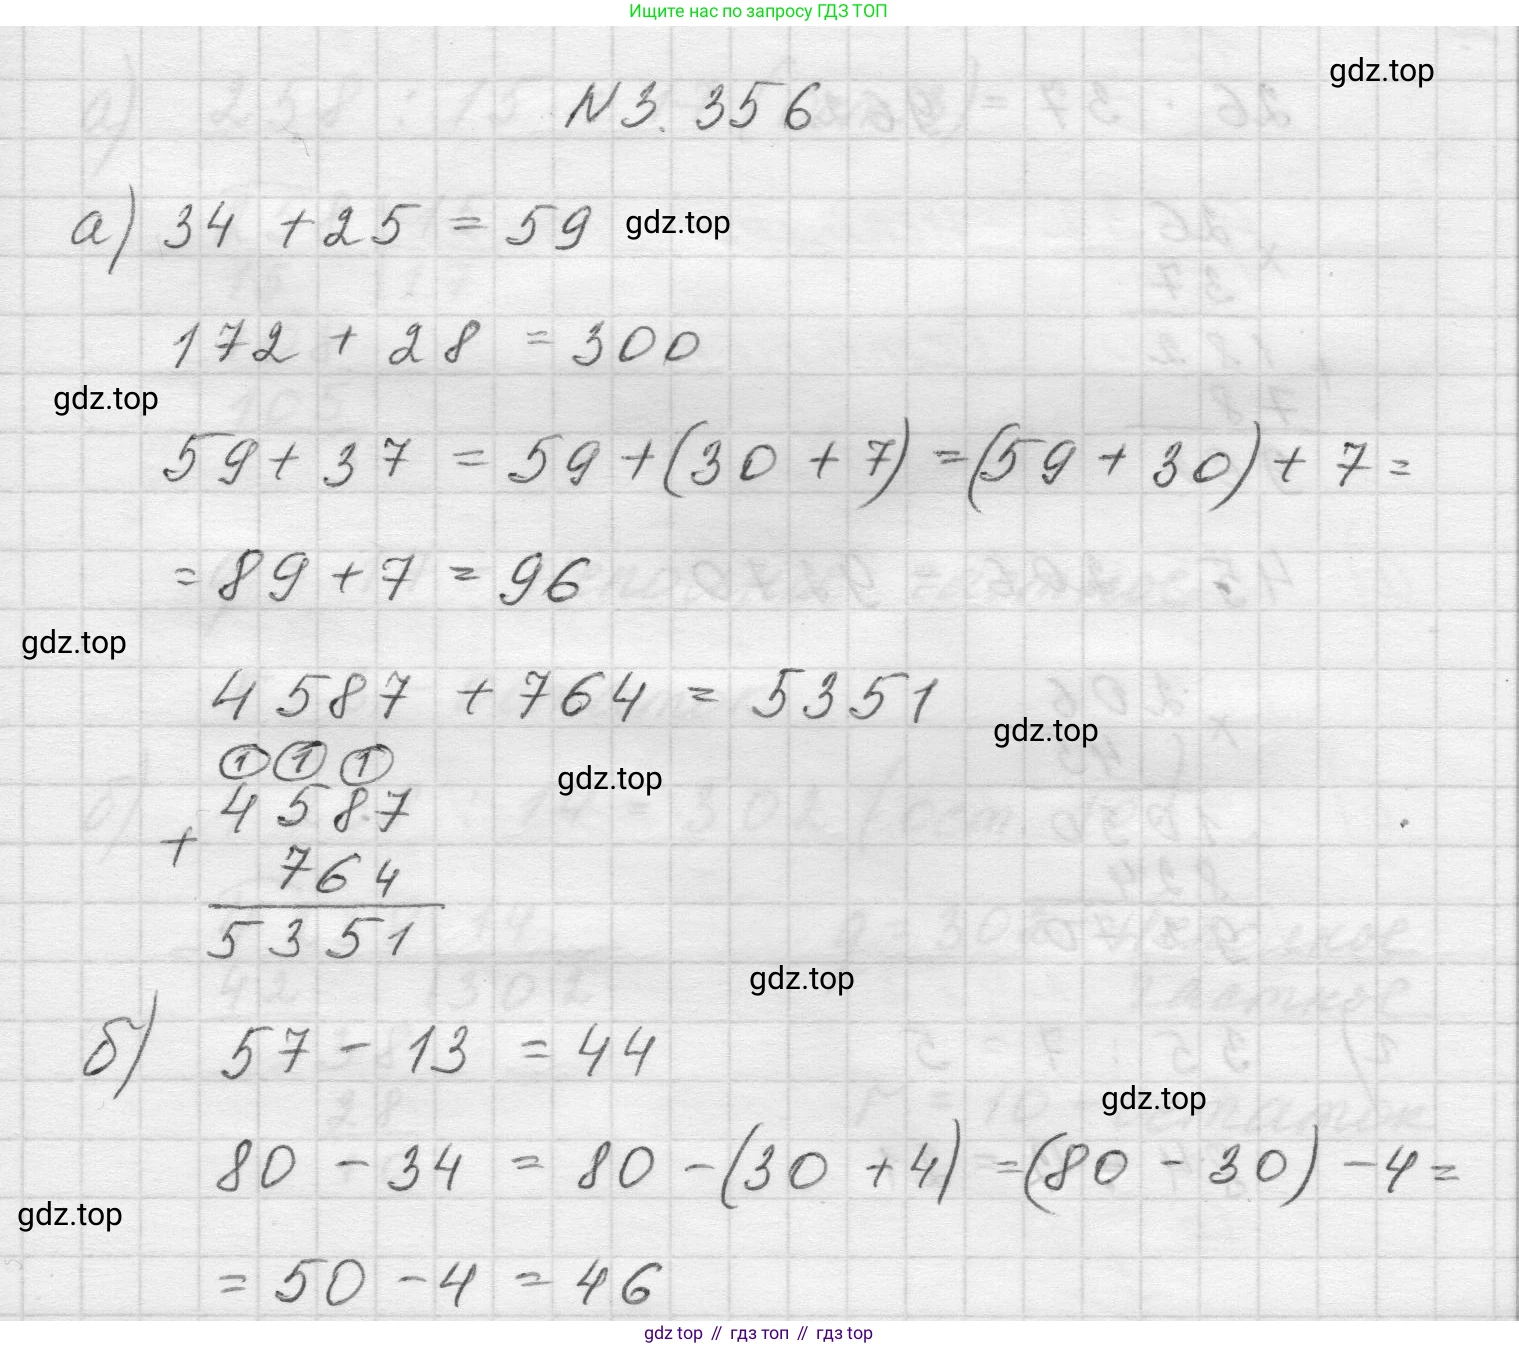 Ищите нас по запросу ГДЗ ТОП
gdz.top
N 3. 356
а) 34 + 25 = 59
gdz.top
172 + 28 = 300
gdz.top
59 + 37 = 59 + (30 + 7) = (59 + 30) + 7 =
= 89 + 7 = 96
gdz.top
4587 + 764 = 5351
gdz.top
1 1 1
gdz.top
4587
+
764
5351
gdz.top
б) 57 - 13 = 44
gdz.top
80 - 34 = 80 - (30 + 4) = (80 - 30) - 4 =
gdz.top
= 50 - 4 = 46
gdz top // гдз топ // гдз top